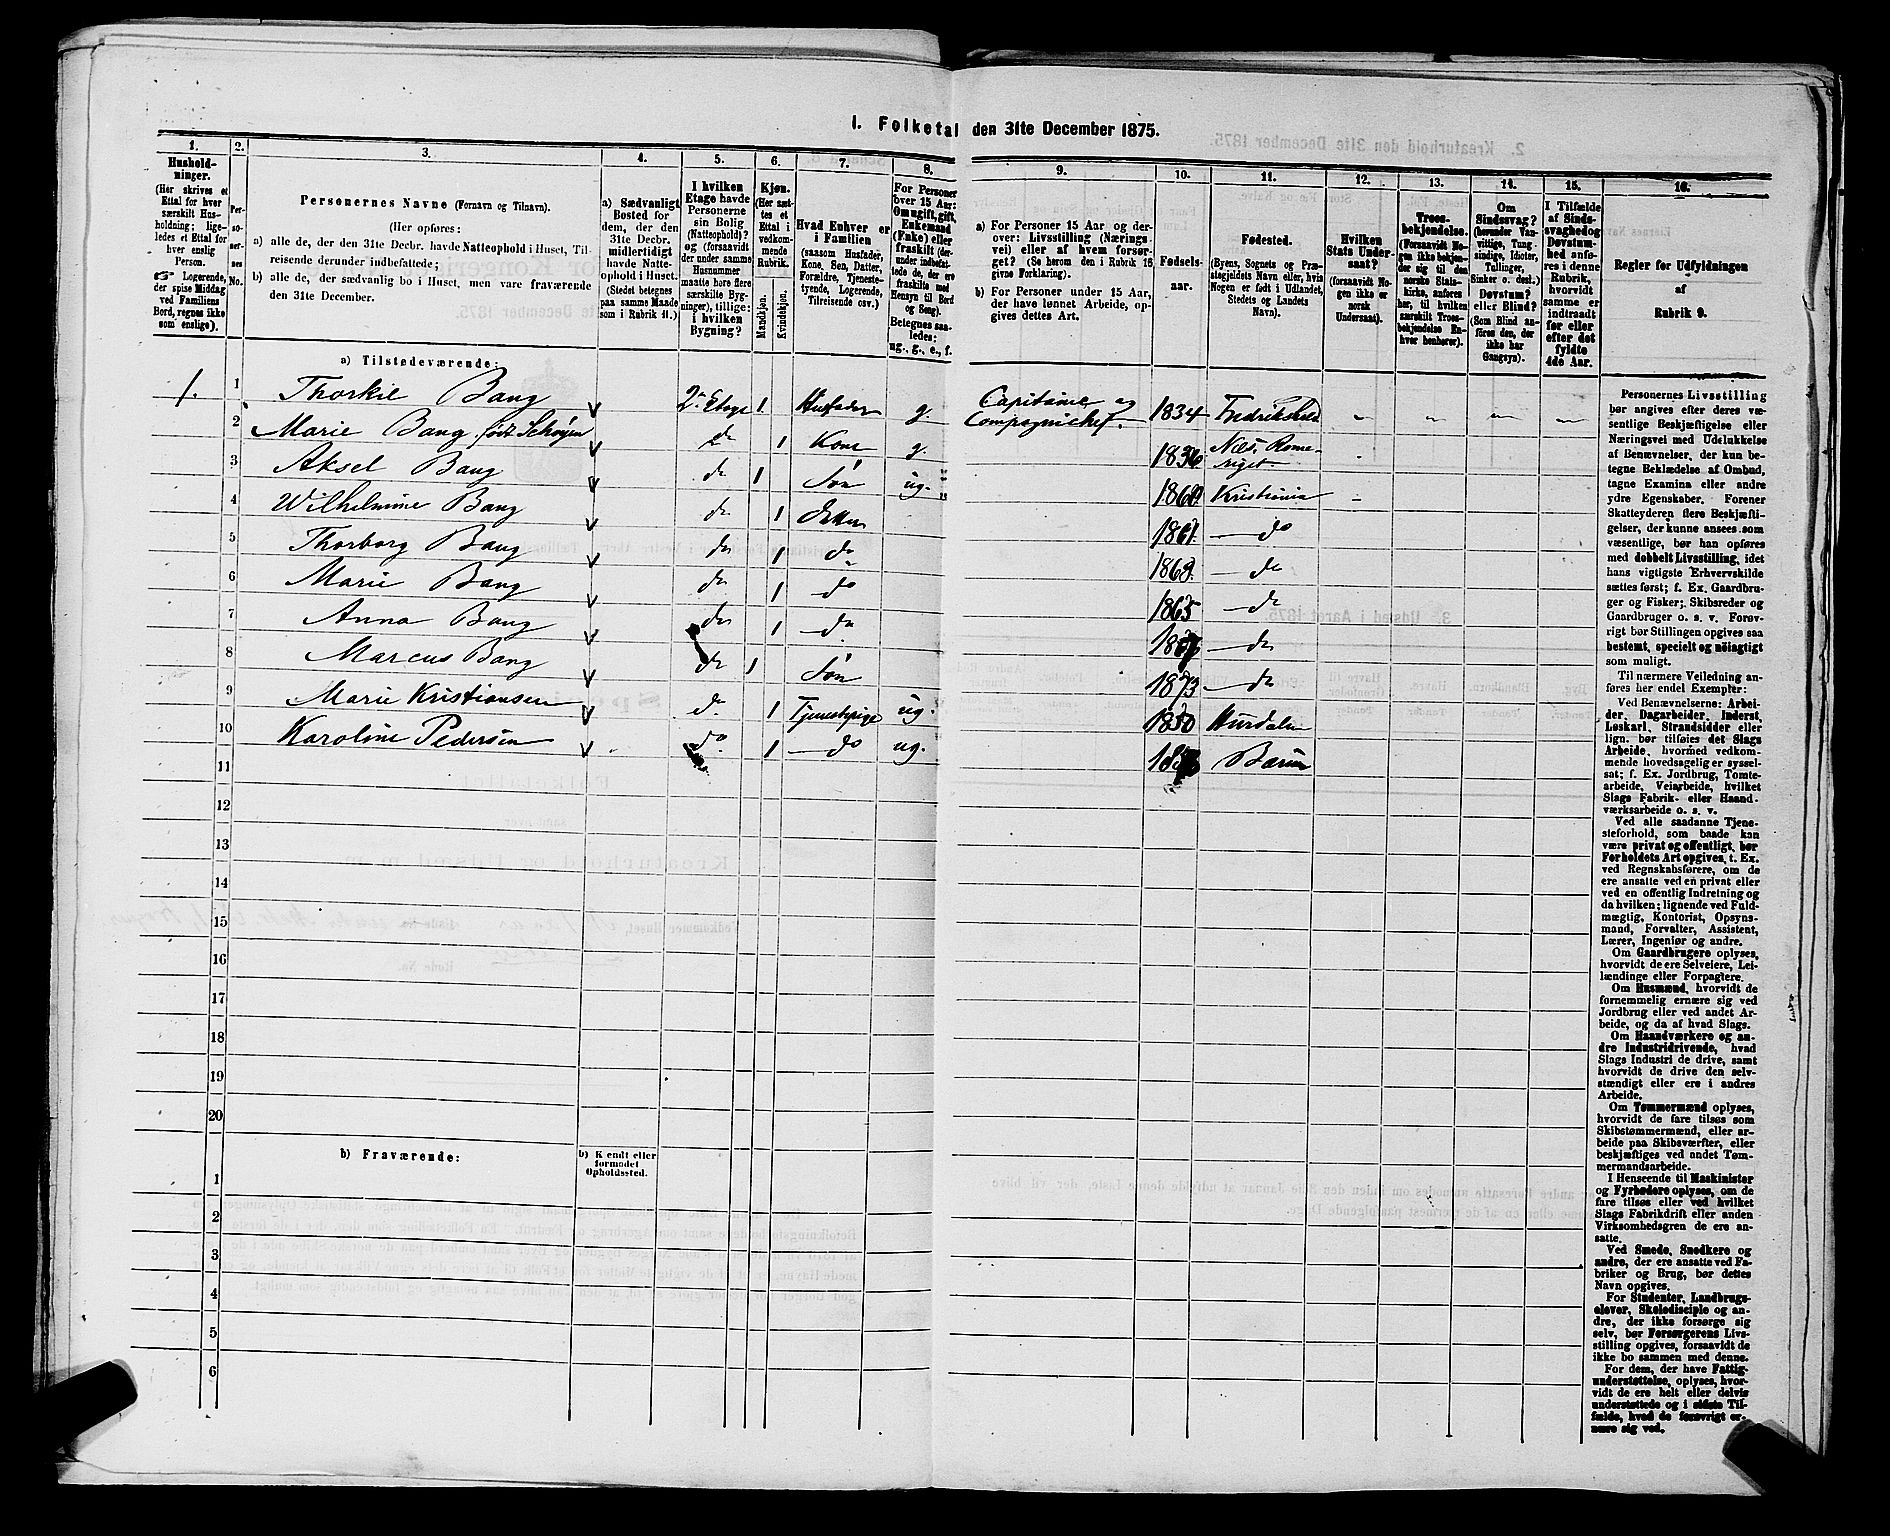 I. Folketal den 31te December 1875.
1. 2. 3. 4. 5. 6. 7. 8. 9. 10. 11. 12. 13. 14. 15. 16.
Hushold-
ninger.
(Her skrives et
Ettal for hver
særskilt Hus-
holdning; lige-
ledes et Ettal for
hver enslig
Person.
☞ Logerende,
der spise Middag
ved Familiens
Bord, regnes ikke
som enslige).
Per-
so-
ner-
nes
No.
Personernes Navne (Fornavn og Tilnavn).
(Her opføres:
a) alle de, der den 31te Decbr. havde Natteophold i Huset, Til-
reisende derunder indbefattede;
b) alle de, der sædvanlig bo i Huset, men vare fraværende
den 31te December.
a) Sædvanligt
Bosted for
dem, der den
31te Decbr.
midlertidigt
havde Natte-
ophold i Huset.
(Stedet betegnes
paa samme Maade
som i Rubrik 11.)
I hvilken
Etage havde
Personerne
sin Bolig
(Natteophold)?
og (forsaavidt
der under samme
Husnummer
maatte høre flere
særskilte Byg-
ninger), tillige:
i hvilken
Bygning?
Kjøn.
(Her sæt-
tes et
Ettal i
vedkom-
mende
Rubrik.
Mandkjøn.
Kvindekjøn.
Hvad Enhver er
i Familien
(saasom Husfader,
Kone, Søn, Datter,
Forældre, Tjeneste-
tyende, Logerende,
Tilreisende osv.)
For Personer
over 15 Aar:
Om ugift, gift,
Enkemand
(Enke) eller
fraskilt (der-
under indbefat-
tede de, der ere
fraskilte med
Hensyn til Bord
og Seng).
Betegnes saa-
ledes:
ug., g., e., f.
a) For Personer 15 Aar og der-
over: Livsstilling (Nærings-
vei) eller af hvem forsør-
get? (Se herom den i Rubrik 16
givne Forklaring).
b) For Personer under 15 Aar,
der have lønnet Arbeide, op-
gives dettes Art.
Fødsels-
aar.
Fødested.
(Byens, Sognets og Præ-
stegjeldets Navn, eller, hvis
Nogen er født i Udlandet,
Stedets og Landets
Navn).
Hvilken
Stats Under-
saat?
(forsaavidt No-
gen ikke er
norsk
Undersaat).
Troes-
bekjendelse.
(Forsaavidt No-
gen ikke bekjen-
der sig til den
norske Stats-
kirke, anføres
her, til hvilken
særskilt Troes-
bekjendelse En-
hver henhører).
Om
Sindssvag?
(herunder Van-
vittige, Tung-
sindige, Idioter,
Tullinger,
Sinker o. desl.)
Døvstum?
eller Blind?
(Som Blind an-
føres den, der
ikke har
Gangsyn).
I Tilfælde
af Sinds-
svaghed og
Døvstum-
hed anfø-
res i denne
Rubrik,
hvorvidt
samme er
indtraadt
før eller
efter det
fyldte
4de Aar.
Regler for Udfyldningen
af
Rubrik 9.
a) Tilstedeværende:
1. 1 Thorkil Bang v 2. Etage 1 Husfader g. Capitaine og Compagnichef. 1834 Fredrikshald – – – –
2 Marie Bang født Schøyen v do 1 Kone g. 1836 Næs, Romeriget –
3 Aksel Bang v do 1 Søn ug. 1860 Kristiania –
4 Wilhelmine Bang v do 1 Datter 1861 – do
5 Thorborg Bang v do 1 do 1863 – do
6 Marie Bang v do 1 do 1865 – do
7 Anna Bang v do 1 – do – do
8 Marcus Bang v do 1 Søn 1873 – do
9 Marie Kristiansen v do 1 Tjenestepige ug. 1850 Hurdalen
10 Karoline Pedersen v do 1 – do ug. Bærum
11
12
13
14
15
16
17
18
19
20
b) Fraværende:
b) Kendt eller
formodet
Opholdssted.
1
2
3
4
5
6
Personernes Livsstilling
bør angives efter deres væ-
sentlige Beskjæftigelse eller
Næringsvei med Udelukkelse
af Benævnelser, der kun be-
tegne Beklædelse af Ombud,
tagne Examina eller andre
ydre Egenskaber. Forener
Skatteyderen flere Beskjæfti-
gelser, der kunne ansees som
væsentlige, bør han opføres
med dobbelt Livsstilling, idet
hans vigtigste Erhvervskilde
sættes først; f. Ex. Gaardbru-
ger og Fisker; Skibsreder og
Gaardbruger o. s. v. Forøv-
rigt bør Stillingen opgives saa
bestemt, specielt og nøiagtigt
som muligt.
Til nærmere Veiledning an-
føres her endel Exempter:
Ved Benævnelserne: Arbei-
der, Dagarbeider, Inderst,
Løskarl, Strandsidder eller
lign. bør tilføies det Slags
Arbeide, hvormed vedkom-
mende hovedsagelig er syssel-
sat; f. Ex. Jordbrug, Tomte-
arbeide, Veiarbeide, hvilket
Slags Fabrik- eller Haand-
værksarbeide o. s. v.
Ved alle saadanne Tjene-
steforhold, som baade kan
være privat og offentligt, bør
Forholdets Art opgives, t. Ex.
ved Regnskabsførere, om de
ere ansatte ved en privat eller
ved en offentlig Indretning og
da hvilken; lignende ved Fuld-
mægtig, Kontorist, Opsyns-
mand, Forvalter, Assistent,
Lærer, Ingeniør og andre.
Om Gaardbrugere oplyses,
hvorvidt de ere Selveiere, Lei-
lændinge eller Forpagtere.
Om Husmænd, hvorvidt de
fornemmelig ernære sig ved
Jordbrug eller ved andet Ar-
beide, og da af hvad Slags.
Om Haandværkere og an-
dre Industridrivende, hvad
Slags Industri de drive, samt
hvorvidt de drive den selv-
stændigt eller ere i andres
Arbeide.
Om Tømmermænd oplyses,
hvorvidt de fare tilsøs som
Skibstømmermænd, eller ar-
beide paa Skibsværfter, eller
beskjæftiges ved andet Tøm-
mermandsarbeide.
I Henseende til Maskinister
og Fyrbødere oplyses, om de
fare tilsøs eller ved hvilket
Slags Fabrikdrift eller anden
Virksomhedsgren de ere an-
satte.
Ved Smede, Snedkere og
andre, der ere ansatte ved Fa-
briker og Brug, bør dettes
Navn opgives.
For Studenter, Landbrugs-
elever, Skoledisciple og an-
dre, der ikke forsørge sig
selv, bør Forsørgerens Livs-
stilling opgives, forsaavidt de
ikke bo sammen med denne.
For dem, der have Fattig-
understøttelse, oplyses, hvor-
vidt de ere helt eller delvis
understøttede og i sidste Til-
fælde, hvad de forøvrigt er-
nære sig ved.